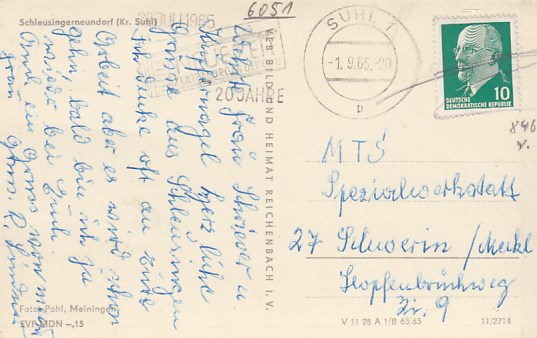 Schleusingerneundorf (Kr. Suhl)
6051
20 JAHRE
SUHL 1
-1.9.65.-20
b
10
DEUTSCHE
DEMOKRATISCHE REPUBLIK
846
v.
VEB BILD UND HEIMAT REICHENBACH I. V.
Werte Frau Schröder u.
herzliche
Grüße aus Schleusingen
Ich denke oft an eure
Arbeit aber es wird schon
gehn, bald bin ich ja
wieder bei Euch.
Und ein Gruss von
Frau
MTS
Spezialwerkstatt
27 Schwerin/Meckl
Hopfenbruchweg
Zi. 9
Foto: Pohl, Meiningen
EVP MDN -,15
V 11 28 A 1/B 65/65
11/2714